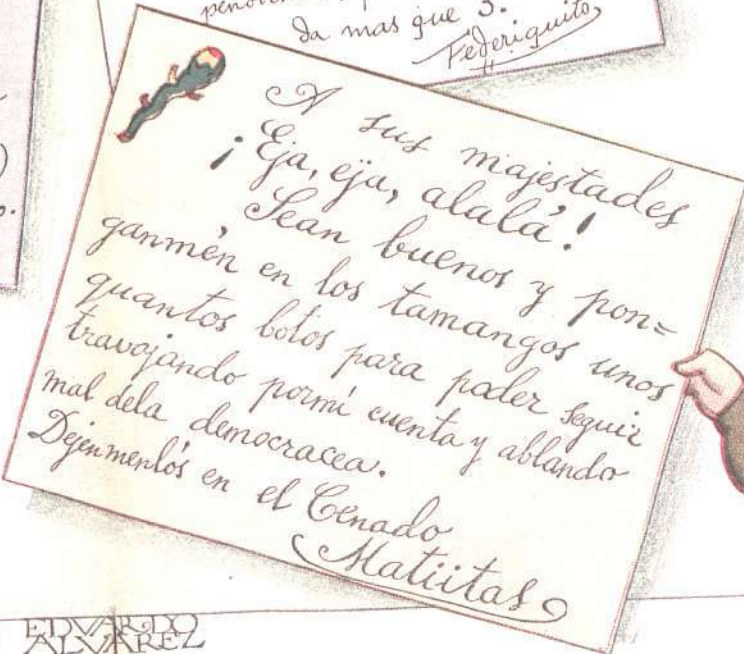 da mas que 3.
Federiquito
A sus majestades
¡Eja, eja, alalá!
Sean buenos y pon=
ganmén en los tamangos unos
quantos botos para poder seguir
travajando pormí cuenta y ablando
mal dela democracea.
Dejenmenlós en el Cenado
Matiitas
EDVARDO
ALVAREZ